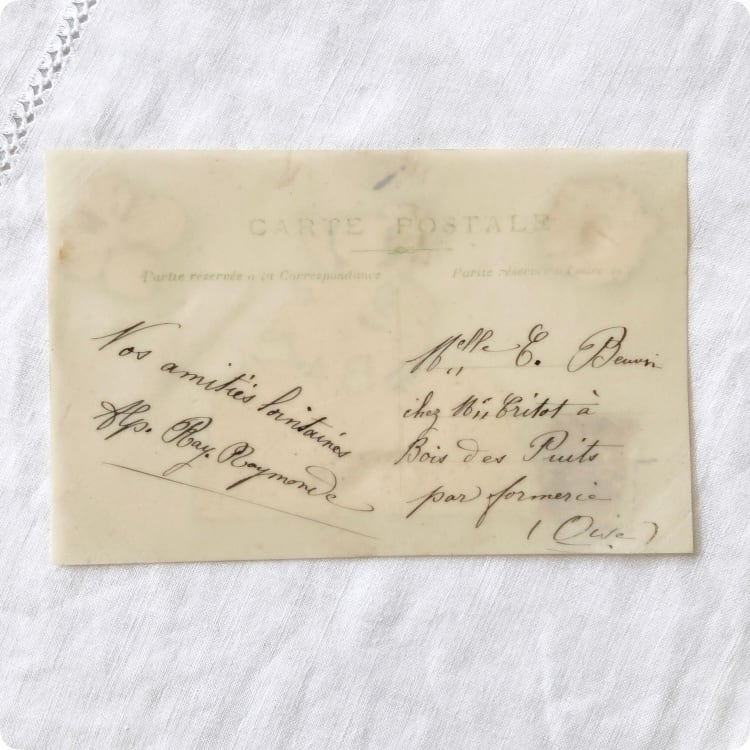 CARTE POSTALE
Partie réservée à la Correspondance
Partie réservée à
Nos amitiés lointaines
Alp. Ray. Raymonde
Melle E.
chez Mr Critot à
Bois des Puits
par formerie
(Oise)